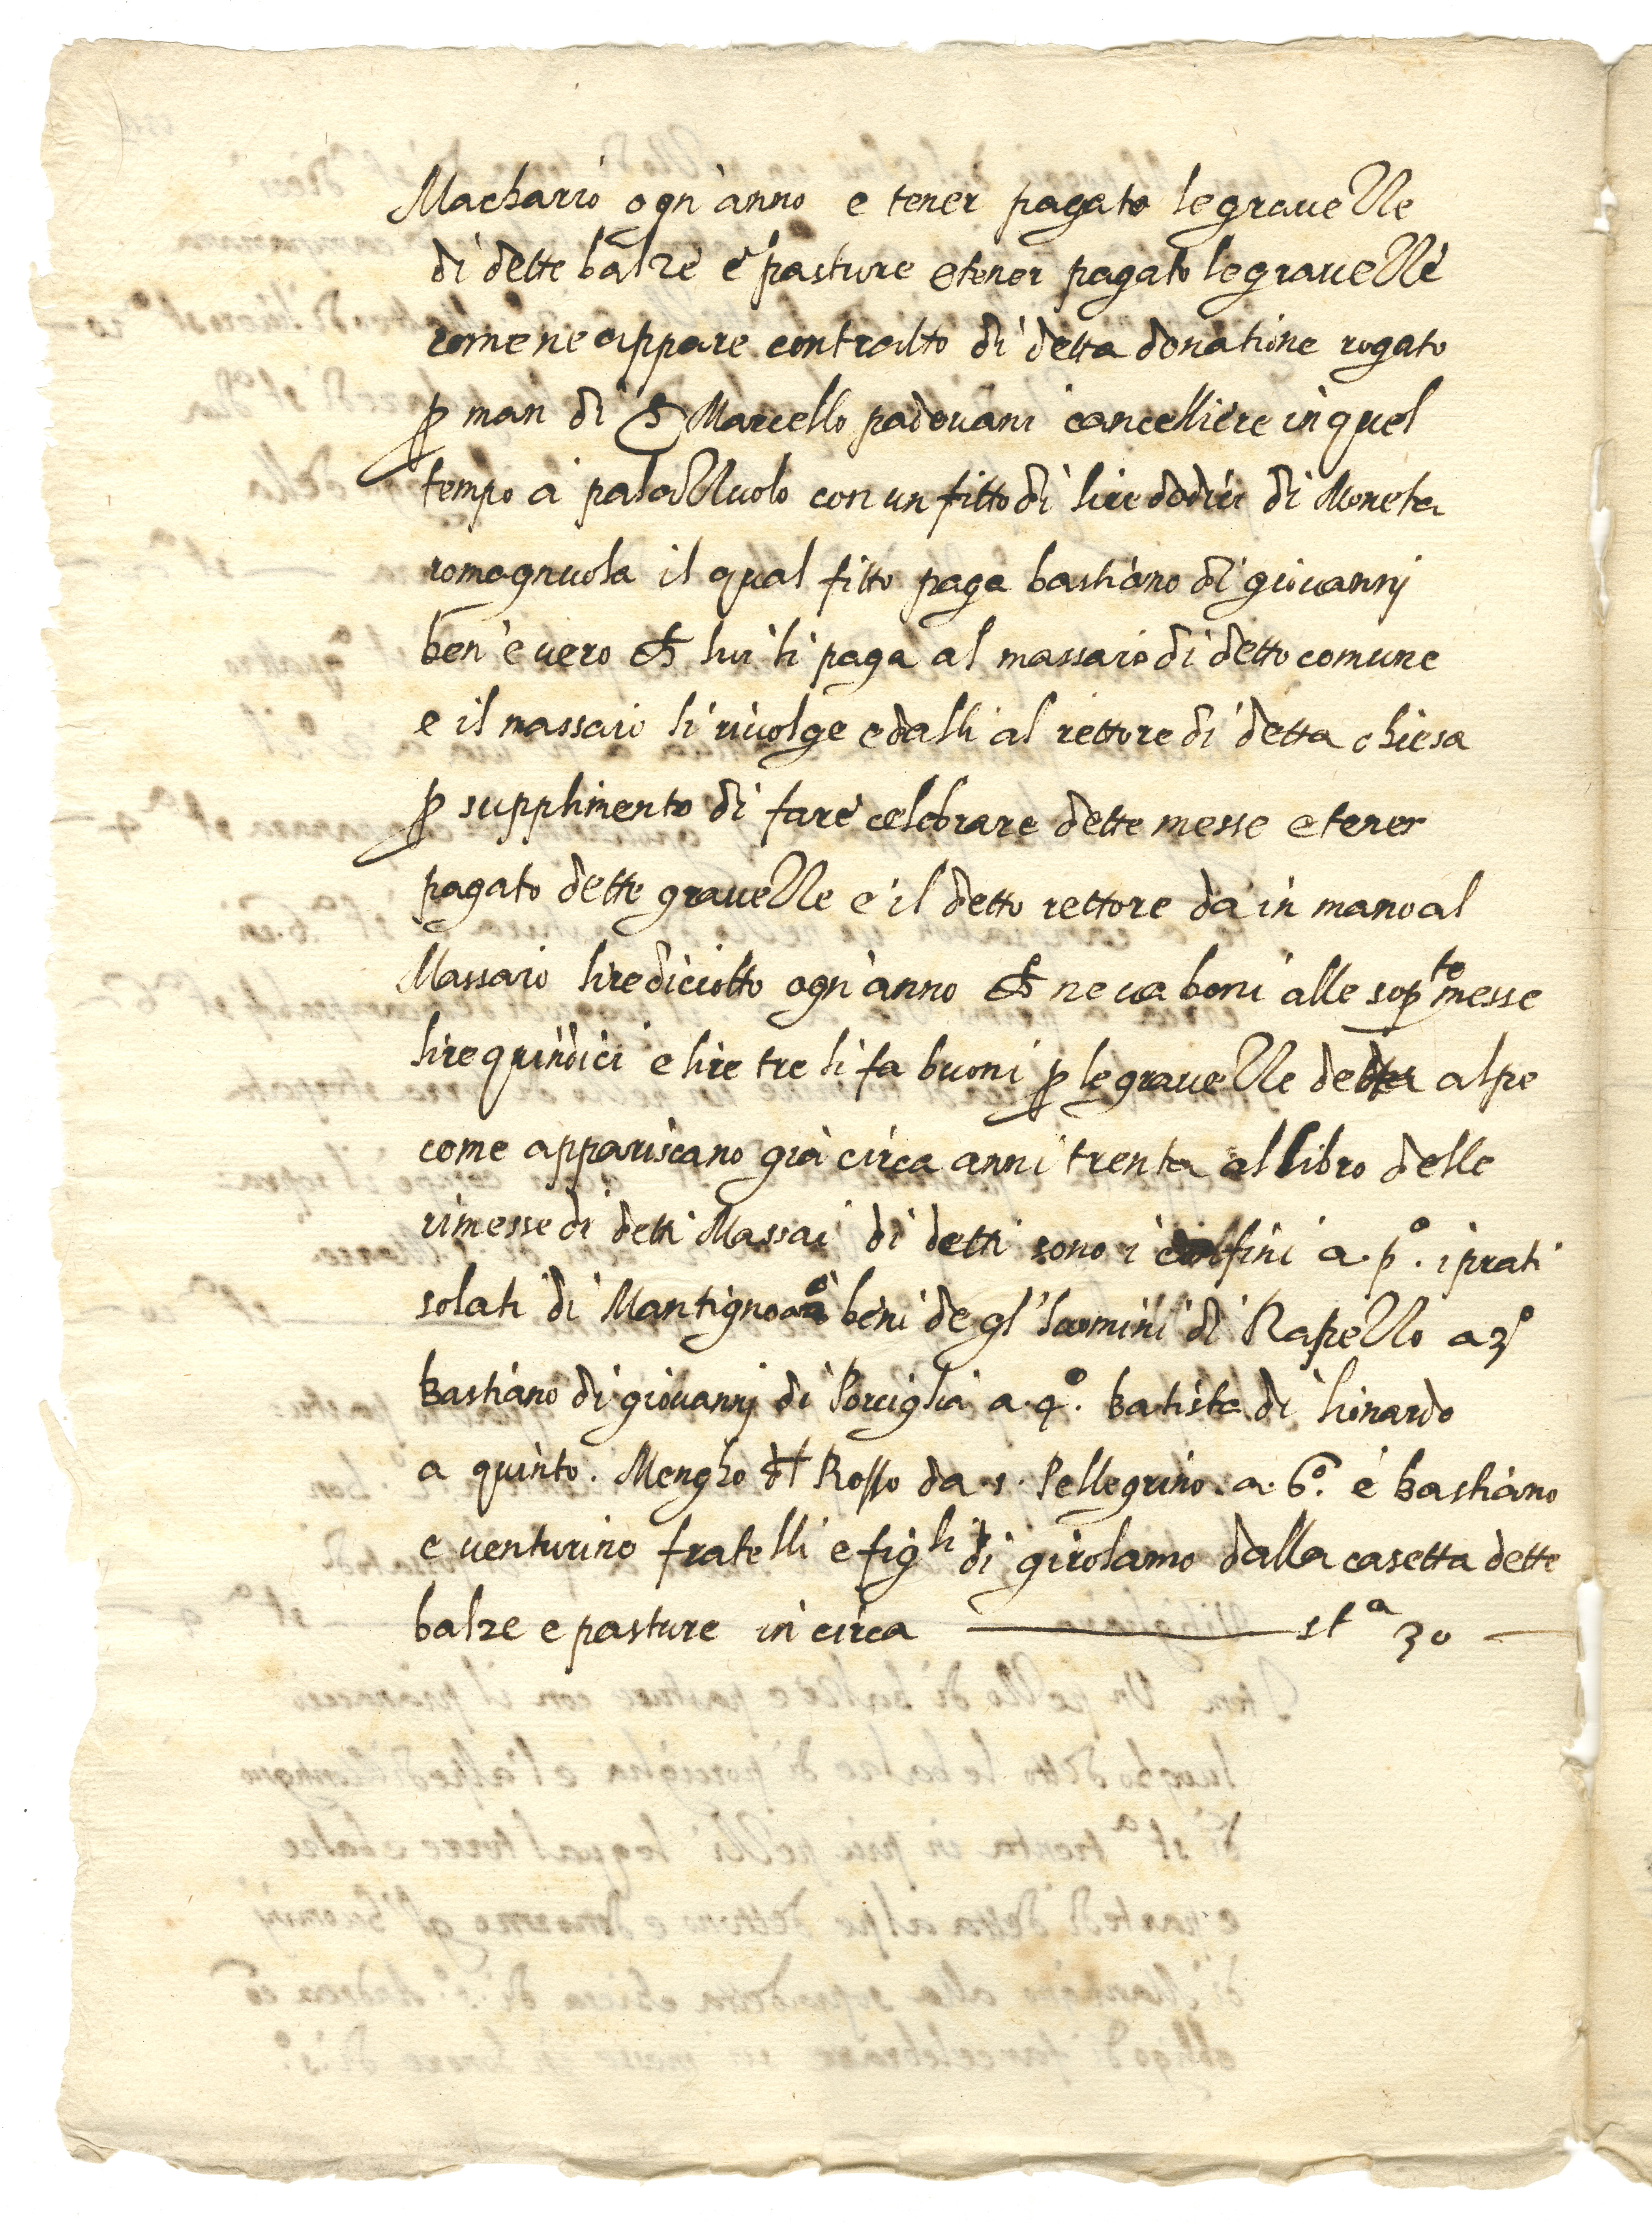 Machario ogn'anno e tener pagato le gravezze
di dette balze e pasture e tener pagato le gravezze
come ne appare contratto di detta donatione rogato
p man di S Marcello padovani cancelliere in quel
tempo à palazzuolo con un fitto di lire dodici di Moneta
romagnuola il qual fitto paga bastiano di giovannj
ben è vero ch lui li paga al massaio di detto comune
e il massaio li rivolge e dalli al rettore di detta chiesa
p supplimento di fare celebrare dette messe e tener
pagato dette gravezze e il detto rettore da in mano al
Massaio lire diciotto ogn'anno ch ne va boni alle sop.te messe
lire quindici e lire tre li fa buoni p le gravezze detta alpe
come appariscano già circa anni trenta al libro delle
rimesse di detti Massai di detti sono i confini a. p.º i prati
solati di Mantigno a 2º beni de gl'huomini di Rapezzo a 3º
Bastiano di giovannj di Porciglia a. 4.º Batista di lionardo
a quinto. Mengho dl Rosso da s. Pellegrino. a. 6.º è Bastiano
e venturino fratelli e figli di girolamo dalla casetta dette
balze e pasture in circa — st.a 30 —